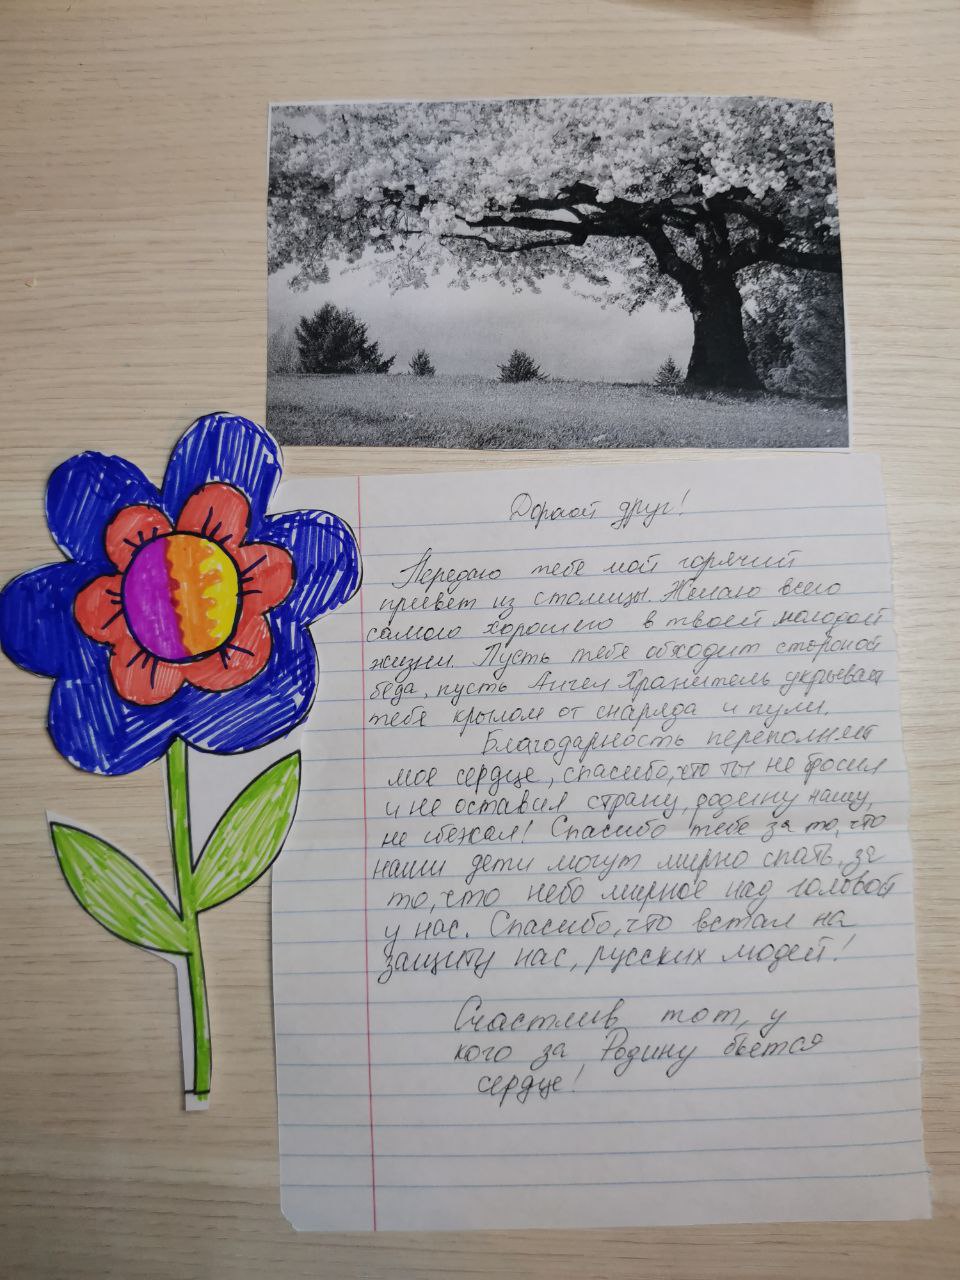 Дорогой друг!
Передаю тебе мой горячий
привет из столицы. Желаю всего
самого хорошего в твоей молодой
жизни. Пусть тебя обходит стороной
беда, пусть Ангел Хранитель укрывает
тебя крылом от снаряда и пули.
Благодарность переполняет
мое сердце, спасибо, что ты не бросил
и не оставил страну, родину нашу,
не сбежал! Спасибо тебе за то, что
наши дети могут мирно спать, за
то, что небо мирное над головой
у нас. Спасибо, что встал на
защиту нас, русских людей!
Счастлив тот, у
кого за Родину бьется
сердце!